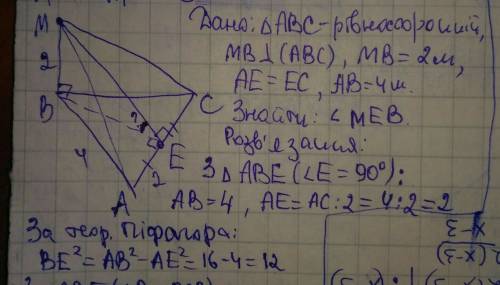 Дано: △ABC - рівносторонній,
MB⊥(ABC), MB = 2м,
AE = EC, AB = 4м.
Знайти: ∠MEB.
Розв'язання:
З △ABE (∠E = 90°):
AB = 4, AE = AC:2 = 4:2 = 2
За теор. Піфагора:
BE² = AB² - AE² = 16 - 4 = 12
M
2
B
?
C
E
4
2
A